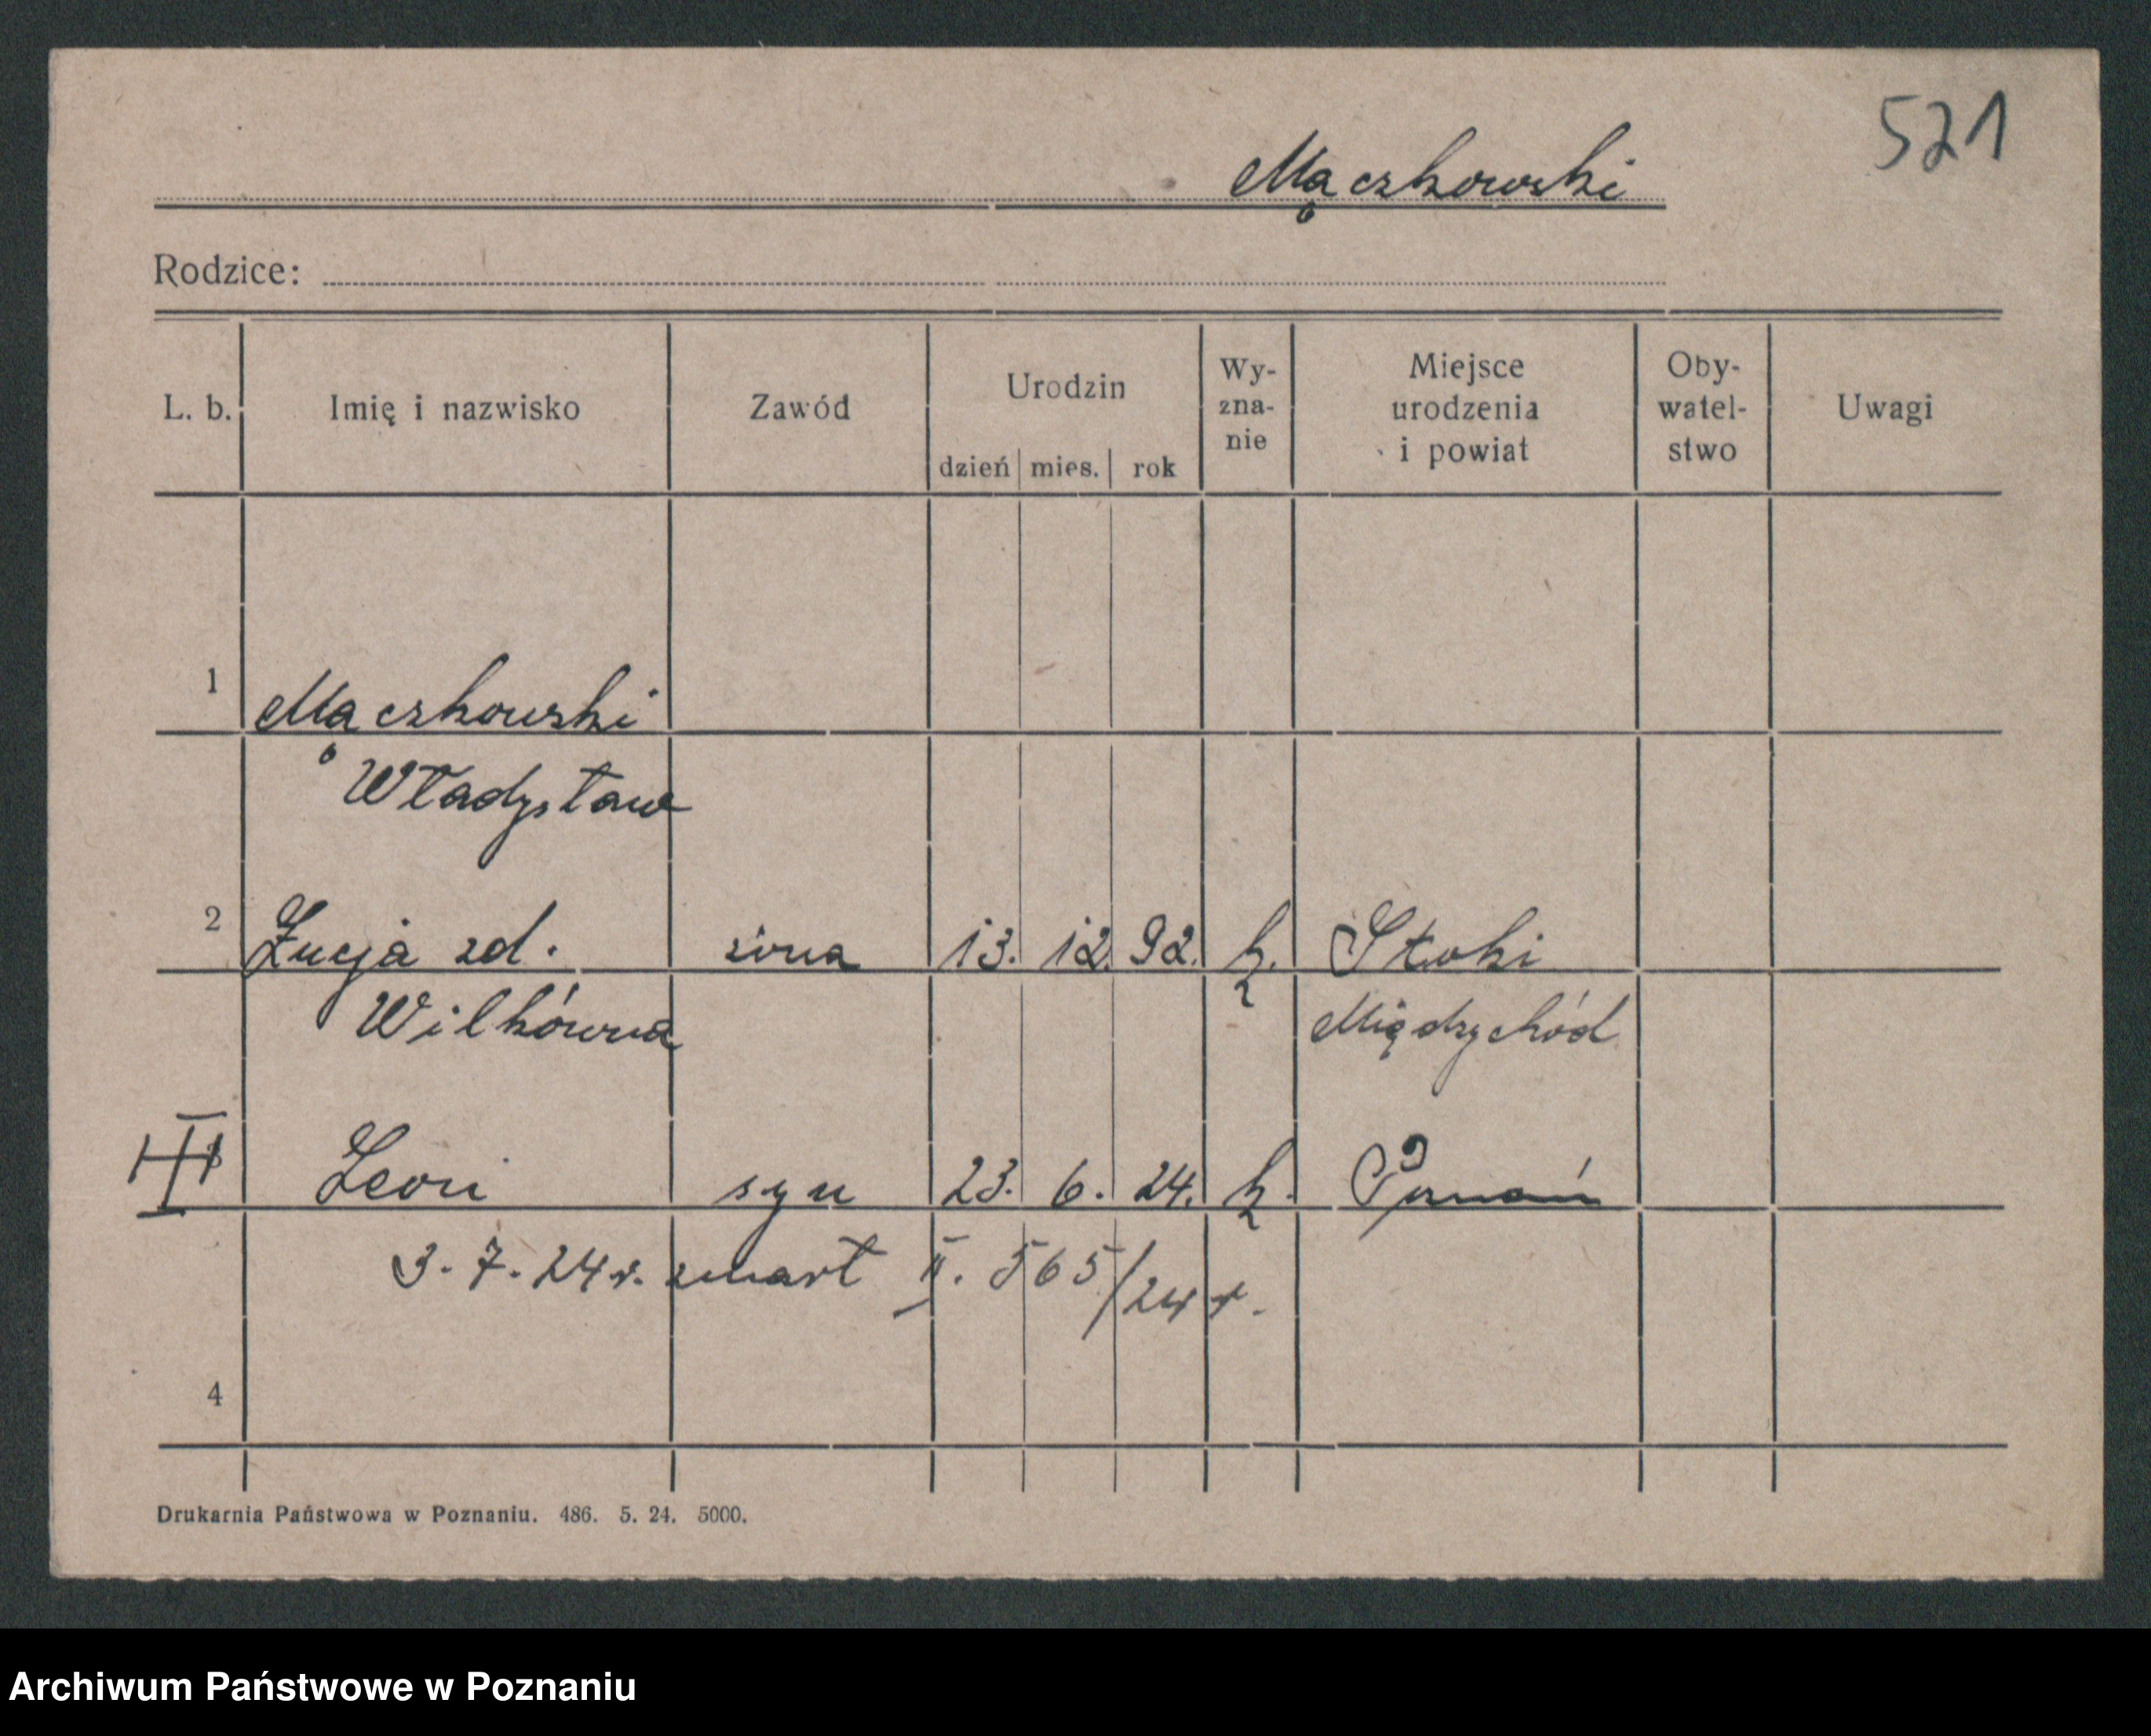 521
Mączkowski
Rodzice:
L. b. Imię i nazwisko Zawód Urodzin dzień mies. rok Wy-zna-nie Miejsce urodzenia i powiat Oby-watel-stwo Uwagi
1 Mączkowski
Władysław
2 Łucja zd. żona 13. 12. 92. k. Stoki
Wilkówna Międzychód
III Leon syn 23. 6. 24. k. Poznań
3. 7. 24 r. zmarł II. 565/24 r.
4
Drukarnia Państwowa w Poznaniu. 486. 5. 24. 5000.
Archiwum Państwowe w Poznaniu